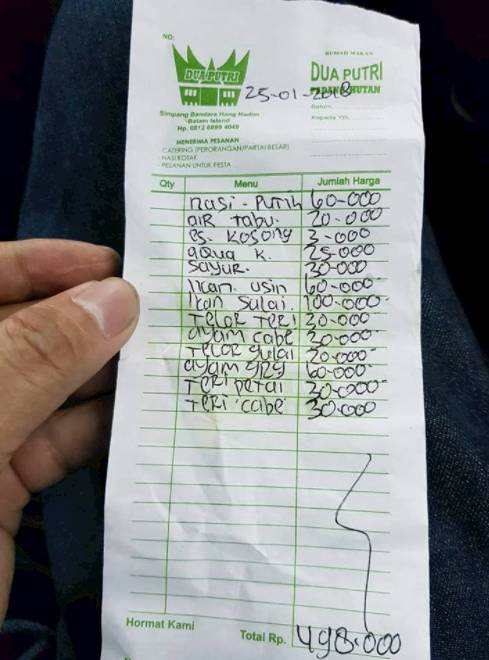 NO:
DUA PUTRI
RUMAH MAKAN
DUA PUTRI
25-01-2018
Simpang Bandara Hang Nadim
Batam Island
Hp. 0812 6899 4049
Batam,
Kepada Yth.
MENERIMA PESANAN
- CATERING (PERORANGAN/PARTAI BESAR)
- NASI KOTAK
- PESANAN UNTUK PESTA
Qty Menu Jumlah Harga
nasi - Putih 60-000
AIR tabu. 20-000
es. kosong 3-000
aqua k. 25.000
sayur. 30-000
Ikan asin 60-000-
Ikan Salai. 100.000-
TeLOR TeRI 30-000
ayam cabe 30.000-
TeLOR gulai 20.000-
ayam grg 60-000-
TeRI petai 30-000-
TeRI cabe 30.000
Hormat Kami
Total Rp. 498.000